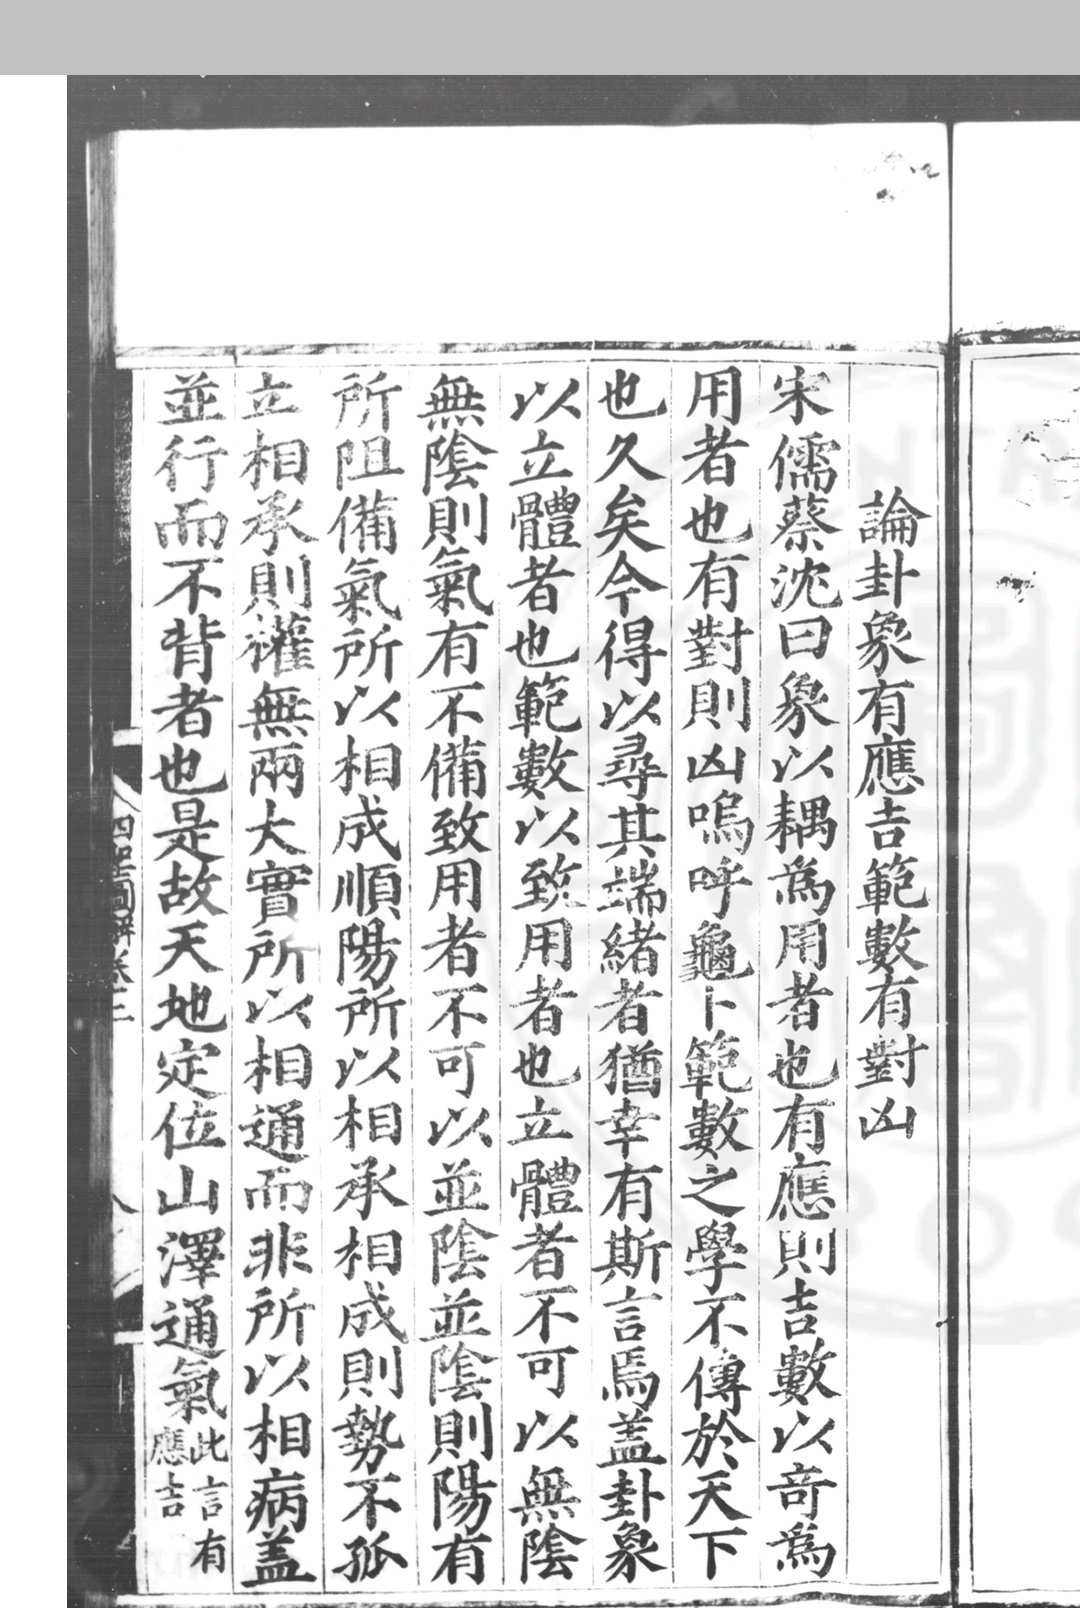 論卦象有應吉範數有對凶
宋儒蔡沈曰象以耦爲用者也有應則吉數以竒爲
用者也有對則凶嗚呼龜卜範數之學不傳於天下
也久矣今得以尋其端緒者猶幸有斯言焉盖卦象
以立體者也範數以致用者也立體者不可以無陰
無陰則氣有不備致用者不可以並陰並陰則陽有
所阻備氣所以相成順陽所以相承相成則勢不孤
立相承則權無兩大實所以相通而非所以相病盖
並行而不背者也是故天地定位山澤通氣此言有
應吉
四聖圖解卷三